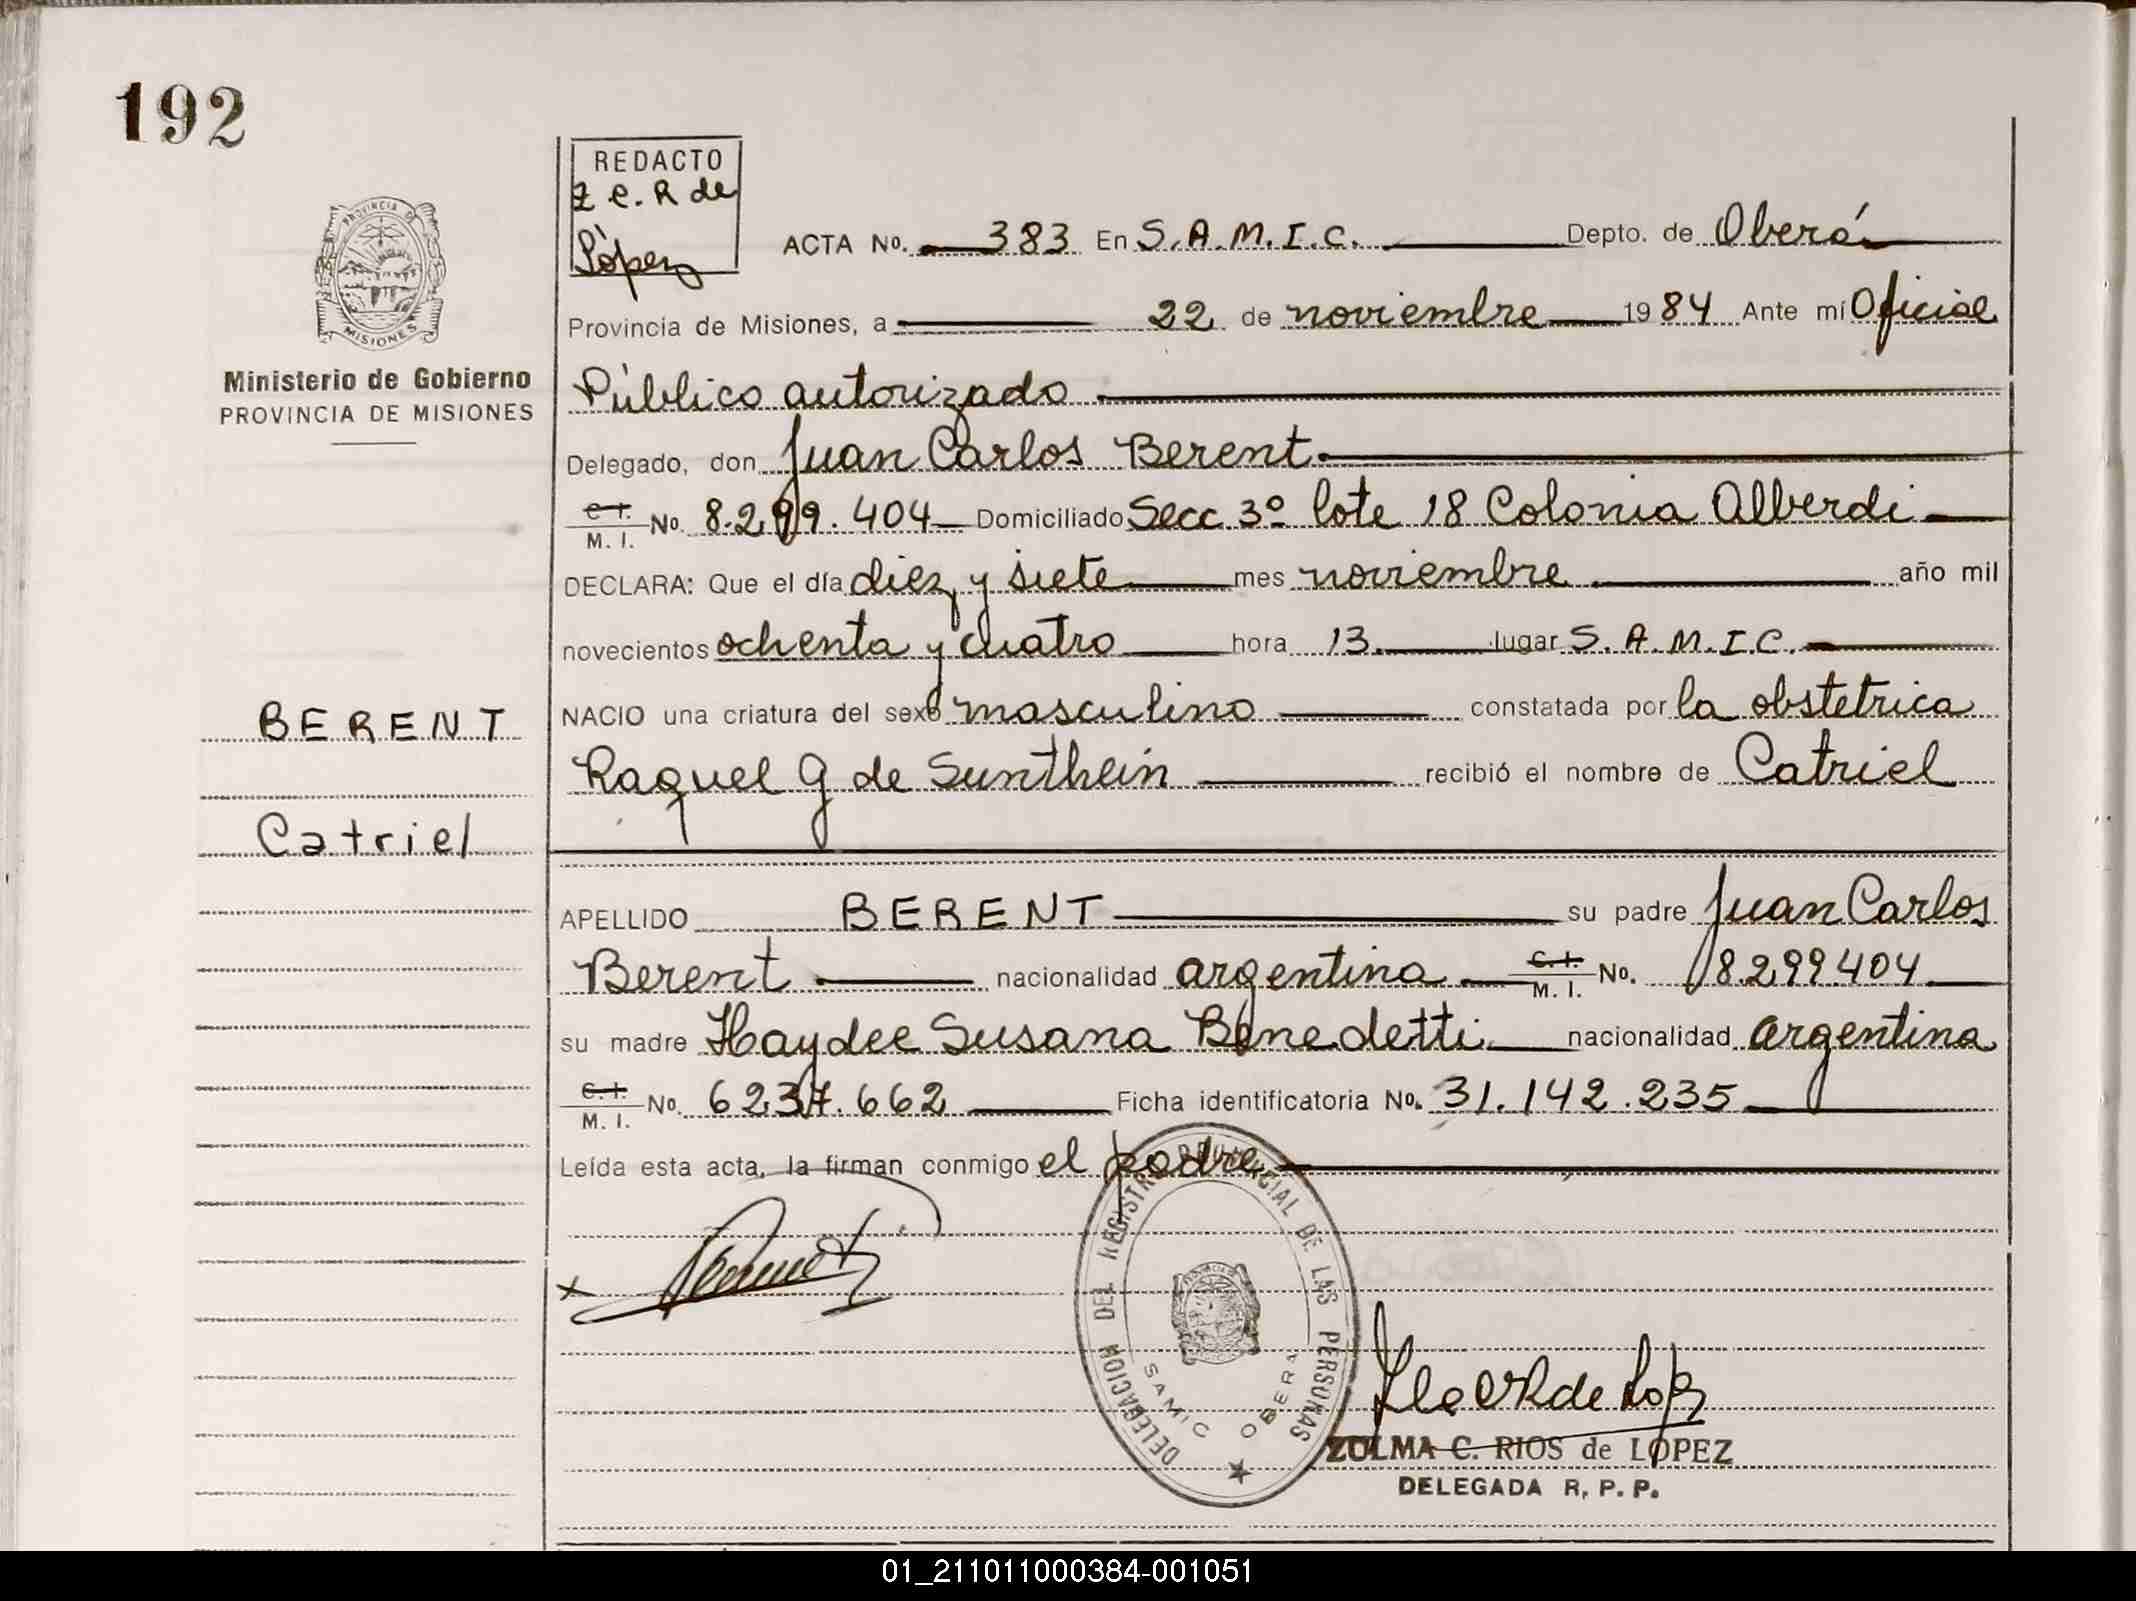 192
REDACTO
Z C. R de
López
ACTA No. 383 En S.A.M.I.C. Depto. de Oberá
Provincia de Misiones, a 22 de noviembre 1984 Ante mí Oficial
Público autorizado
Delegado, don Juan Carlos Berent
C.I. M. I. No. 8.299.404 Domiciliado Secc 3º lote 18 Colonia Alberdi
DECLARA: Que el día diez y siete mes noviembre año mil
novecientos ochenta y cuatro hora 13 lugar S.A.M.I.C.
NACIO una criatura del sexo masculino constatada por la obstetrica
Raquel G de Sunthein recibió el nombre de Catriel
APELLIDO BERENT su padre Juan Carlos
Berent nacionalidad argentina C.I. M. I. No. 8.299.404
su madre Haydee Susana Benedetti nacionalidad argentina
C.I. M. I. No. 6237.662 Ficha identificatoria No. 31.142.235
Leída esta acta, la firman conmigo el padre
PROVINCIA DE
MISIONES
Ministerio de Gobierno
PROVINCIA DE MISIONES
BERENT
Catriel
DELEGACION DEL REGISTRO PROVINCIAL DE LAS PERSONAS
SAMIC OBERA
ZOLMA C. RIOS de LOPEZ
DELEGADA R. P. P.
01_211011000384-001051